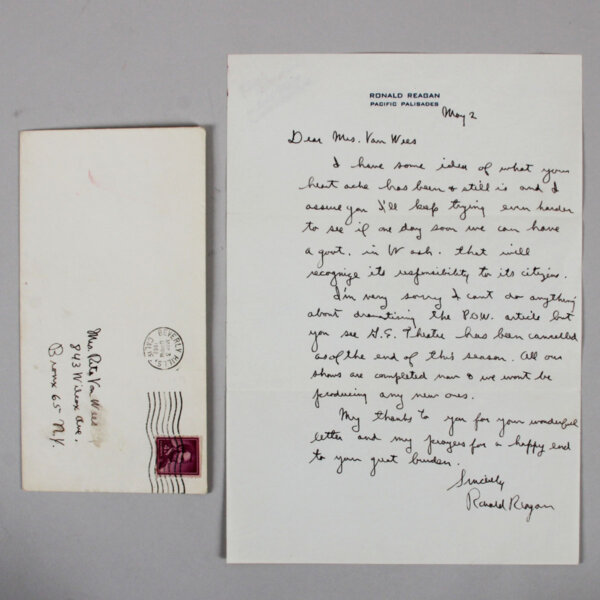 RONALD REAGAN
PACIFIC PALISADES
May 2
Dear Mrs. Van Wees
I have some idea of what your
heart ache has been & still is and I
assure you I'll keep trying even harder
to see if one day soon we can have
a govt. in Wash. that will
recognize its responsibility to its citizens.
I'm very sorry I cant do anything
about dramatizing the P.O.W. article but
you see G.E. Theatre has been cancelled
as of the end of this season. All our
shows are completed now & we wont be
producing any new ones.
My thanks to you for your wonderful
letter and my prayers for a happy end
to your great burden.
Sincerely
Ronald Reagan
Mrs. Rita Van Wees
843 Wilcox Ave.
Bronx 65 N.Y.
BEVERLY HILLS
CALIF.